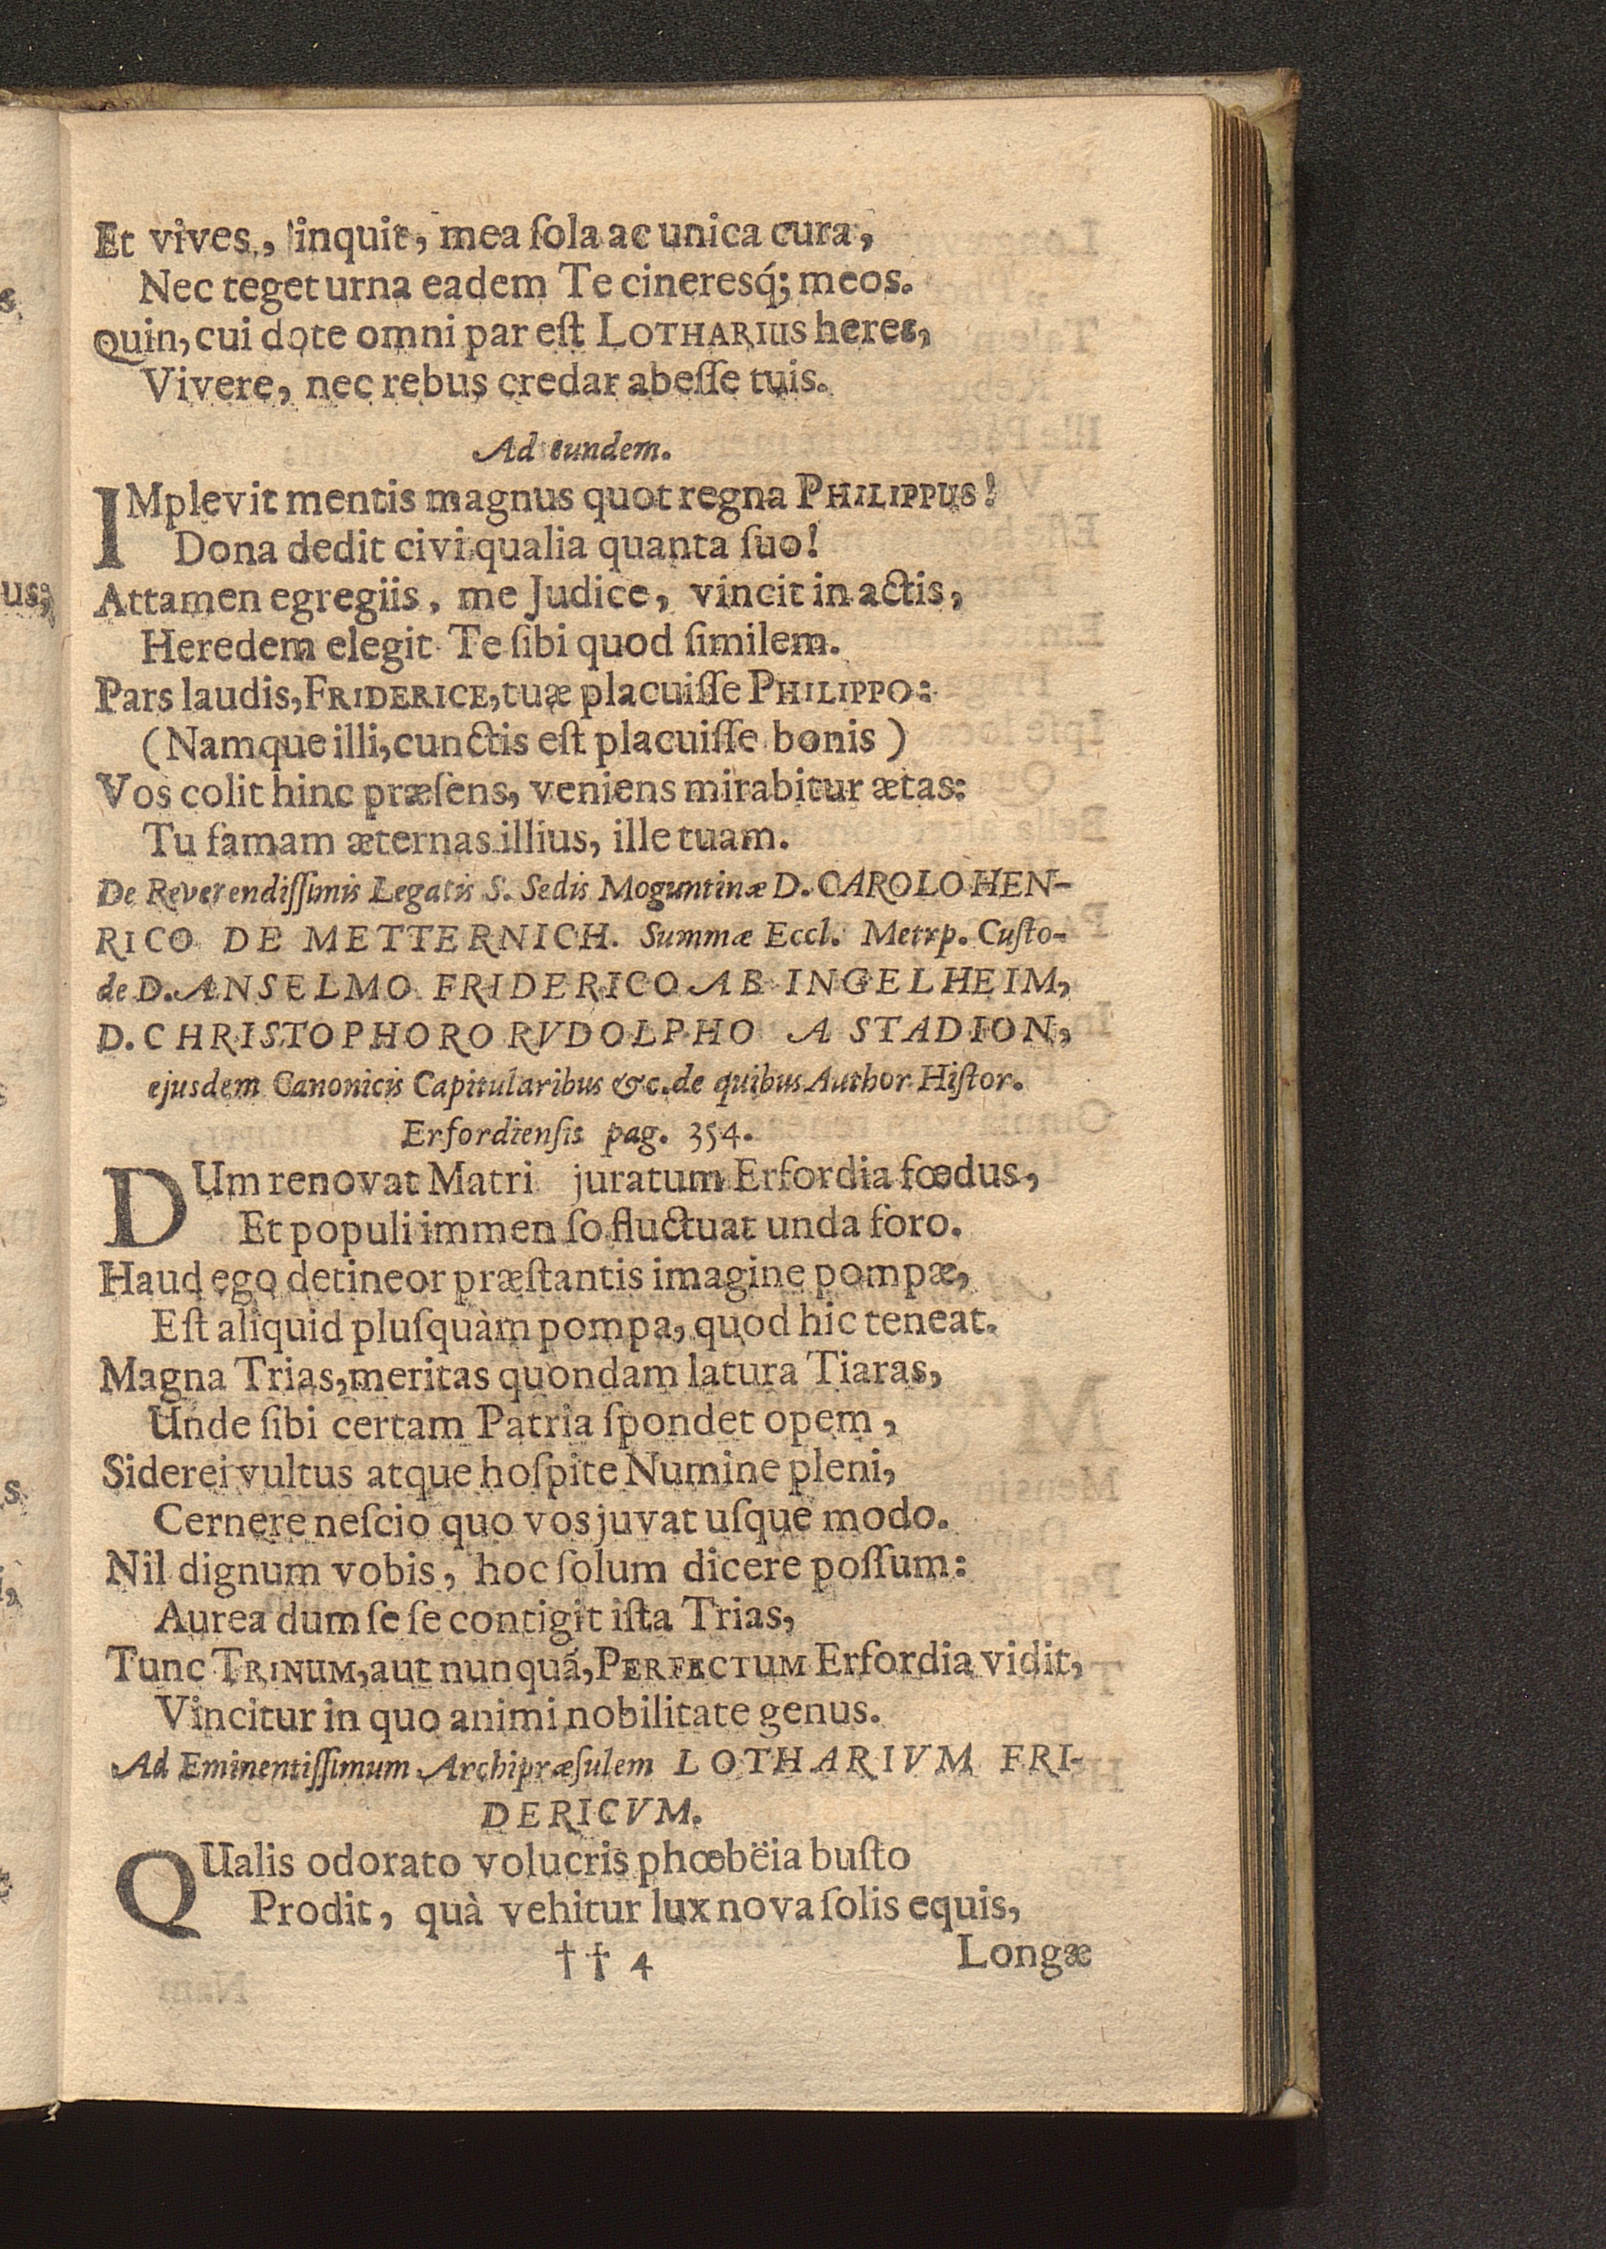 Et vives, inquit, mea ſola ac unica cura,
Nec teget urna eadem Te cineresq́; meos.
Quin, cui dote omni par eſt LOTHARIUS heres,
Vivere, nec rebus credar abeſſe tuis.
Ad eundem.
IMplevit mentis magnus quot regna PHILIPPUS!
Dona dedit civi qualia quanta ſuo!
Attamen egregiis, me Judice, vincit in actis,
Heredem elegit Te ſibi quod ſimilem.
Pars laudis, FRIDERICE, tuæ placuiſſe PHILIPPO:
(Namque illi, cunctis eſt placuiſſe bonis)
Vos colit hinc præſens, veniens mirabitur ætas:
Tu famam æternas illius, ille tuam.
De Reverendiſſimis Legatis S. Sedis Moguntinæ D. CAROLO HEN-
RICO DE METTERNICH. Summæ Eccl. Metrp. Cuſto-
de D. ANSELMO FRIDERICO AB INGELHEIM,
D. CHRISTOPHORO RVDOLPHO A STADION,
ejusdem Canonicis Capitularibus &c. de quibus Author Hiſtor.
Erfordienſis pag. 354.
DUm renovat Matri juratum Erfordia fœdus,
Et populi immenſo fluctuat unda foro.
Haud ego detineor præſtantis imagine pompæ,
Eſt aliquid pluſquàm pompa, quod hic teneat.
Magna Trias, meritas quondam latura Tiaras,
Unde ſibi certam Patria ſpondet opem,
Siderei vultus atque hoſpite Numine pleni,
Cernere neſcio quo vos juvat uſque modo.
Nil dignum vobis, hoc ſolum dicere poſſum:
Aurea dum ſe ſe contigit iſta Trias,
Tunc TRINUM, aut nunquã, PERFECTUM Erfordia vidit,
Vincitur in quo animi nobilitate genus.
Ad Eminentiſſimum Archipræſulem LOTHARIVM FRI-
DERICVM.
QUalis odorato volucris phœbëia buſto
Prodit, quà vehitur lux nova ſolis equis,
†† 4 Longæ